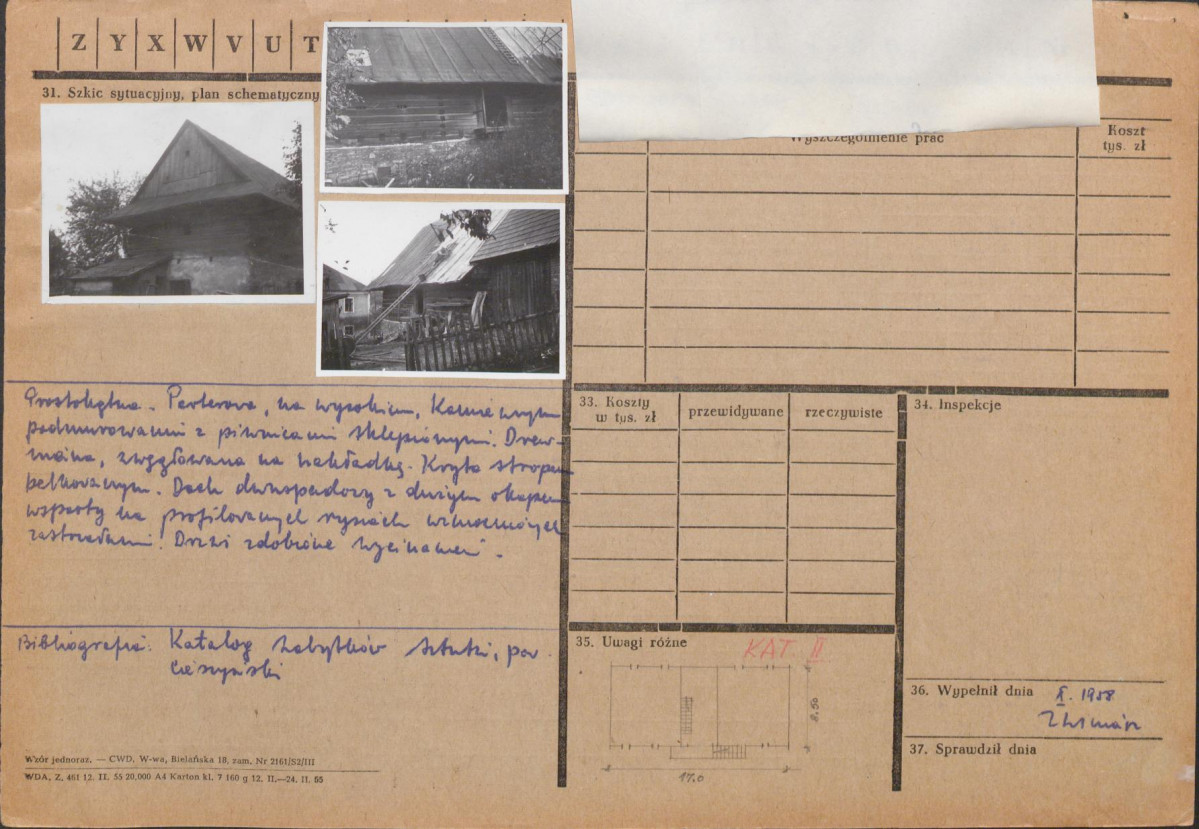 Z Y X W V U T
31. Szkic sytuacyjny, plan schematyczny
Wyszczególnienie prac
Koszt
tys. zł
Prostokątna. Parterowa, na wysokim, kamiennym
podmurowaniu z piwnicami sklepionymi. Drew-
niana, zwęgłowana na nakładkę. Kryta stropem
belkowanym. Dach dwuspadowy z dużym okapem
wsparty na profilowanych rysiach wzmocnionych
zastrzałami. Drzwi zdobione wycinaniem.
Bibliografia: Katalog Zabytków Sztuki, pow.
Cieszyński
Wzór jednoraz. — CWD, W-wa, Bielańska 18, zam. Nr 2161/S2/III
WDA, Z. 461 12. II. 55 20.000 A4 Karton kl. 7 160 g 12. II.—24. II. 55
33. Koszty
w tys. zł
przewidywane
rzeczywiste
34. Inspekcje
35. Uwagi różne
KAT II
8,50
17.0
36. Wypełnił dnia X. 1958
37. Sprawdził dnia